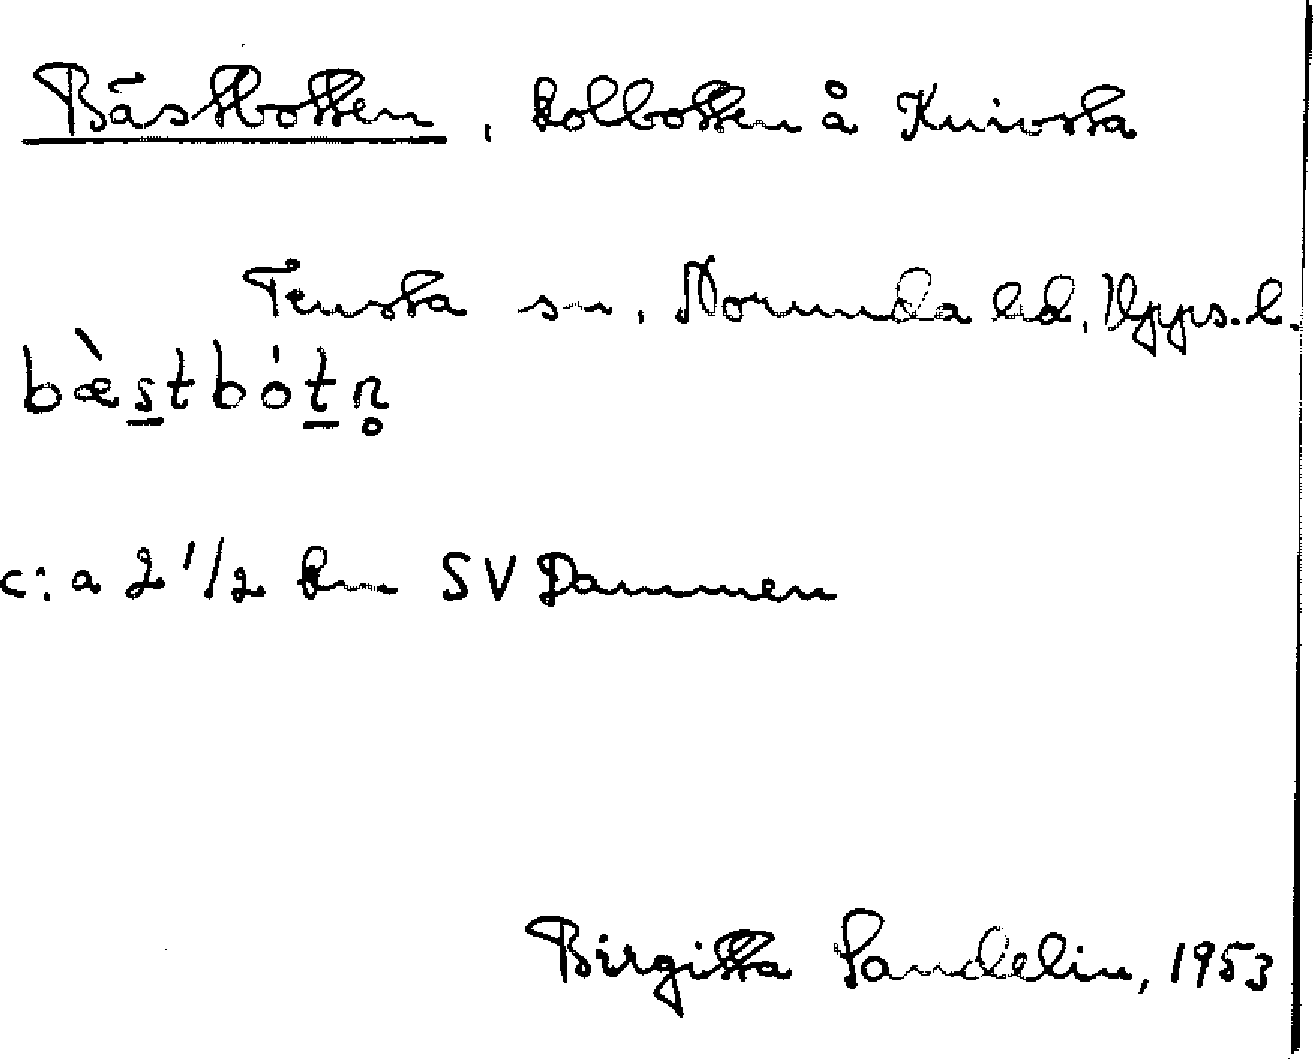 Bästbotten, kolbotten å Knivsta
Tensta sn. Norunda hd. Upps. l.
bæ̀stbótn̥
c:a 2 1/2 km SV Dammen
Birgitta Sandelin, 1953